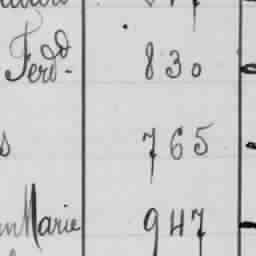 Ferdd. 830
765
Marie 947